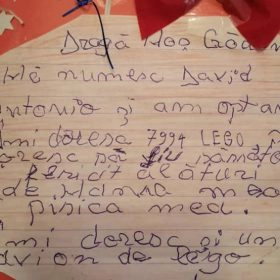 Dragă Moș
numesc David
ntonio și am opt
mi doresc 7994 LEGO
oresc să fiu sănăto
fericit alături
de mama
pisica mea.
mi doresc și un
avion de lego.